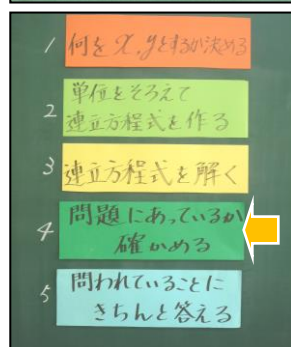 1 何をx,yとするか決める
2 単位をそろえて
連立方程式を作る
3 連立方程式を解く
4 問題にあっているか
確かめる
5 問われていることに
きちんと答える